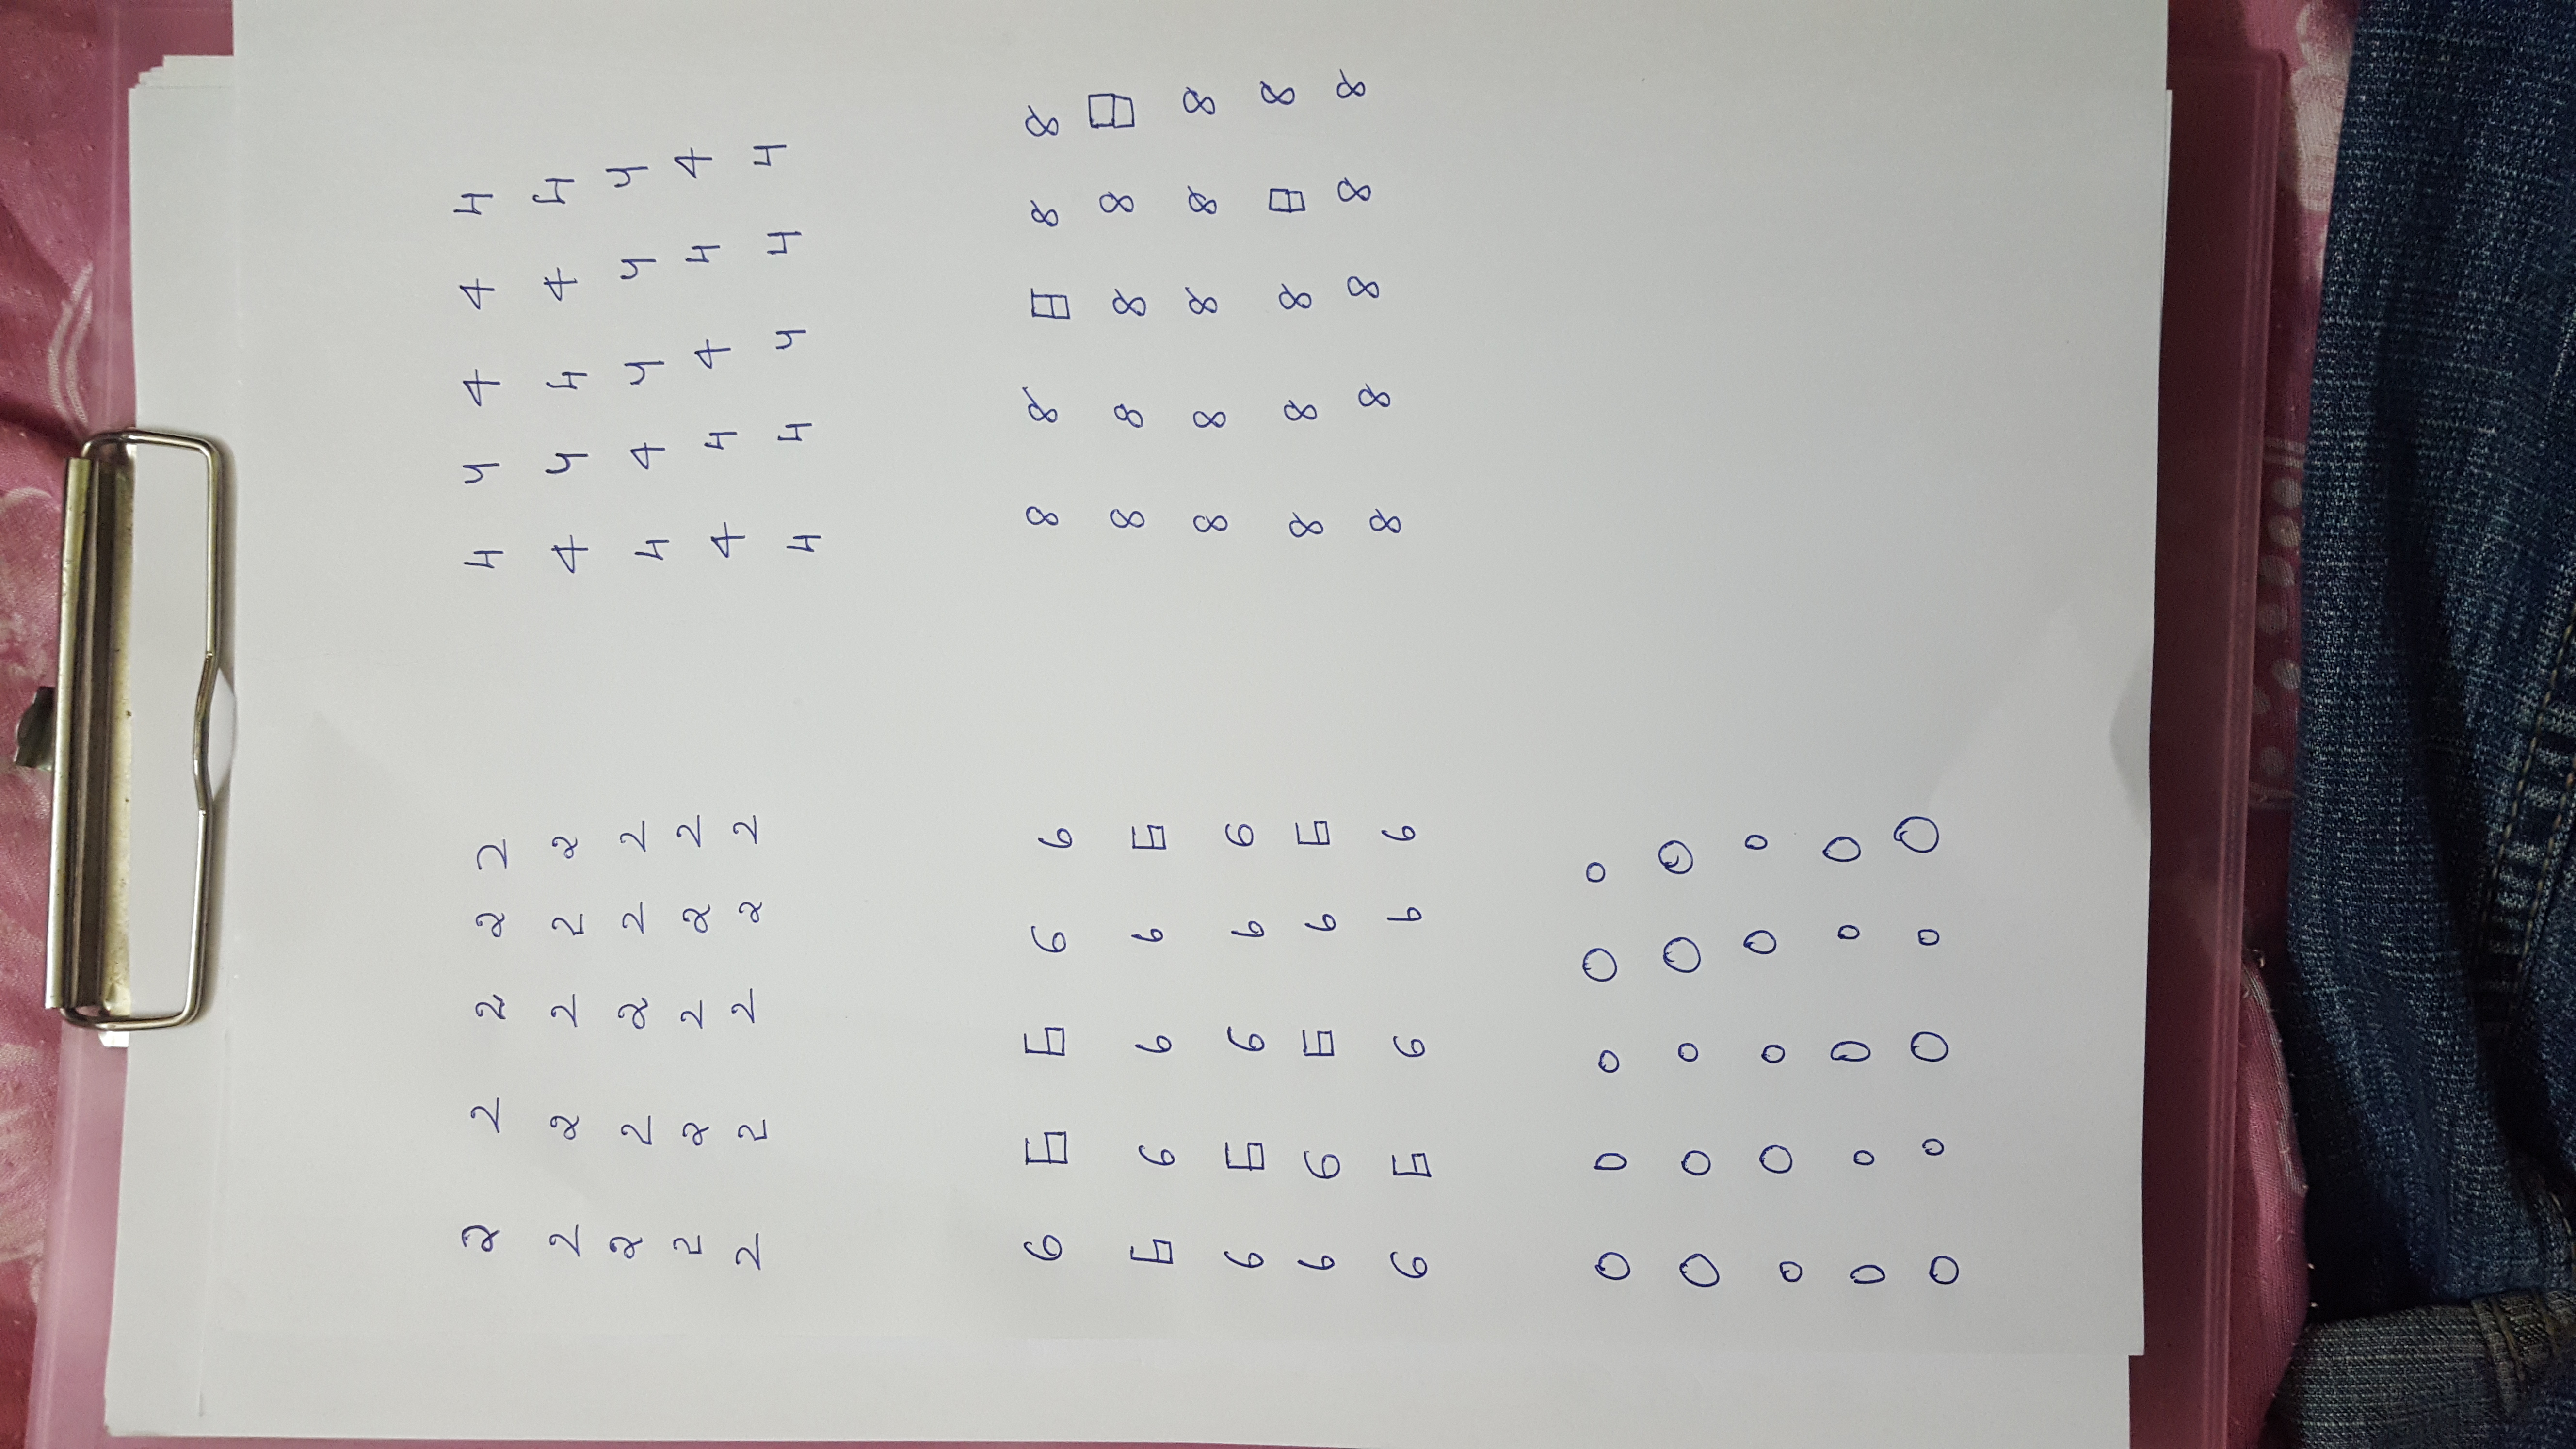 2 2 2 2 2
2 2 2 2 2
2 2 2 2 2
2 2 2 2 2
2 2 2 2 2
4 4 4 4 4
4 4 4 4 4
4 4 4 4 4
4 4 4 4 4
4 4 4 4 4
6 6 6 6 6
6 6 6 6 6
6 6 6 6 6
6 6 6 6 6
6 6 6 6 6
8 8 8 8 8
8 8 8 8 8
8 8 8 8 8
8 8 8 8 8
8 8 8 8 8
0 0 0 0 0
0 0 0 0 0
0 0 0 0 0
0 0 0 0 0
0 0 0 0 0